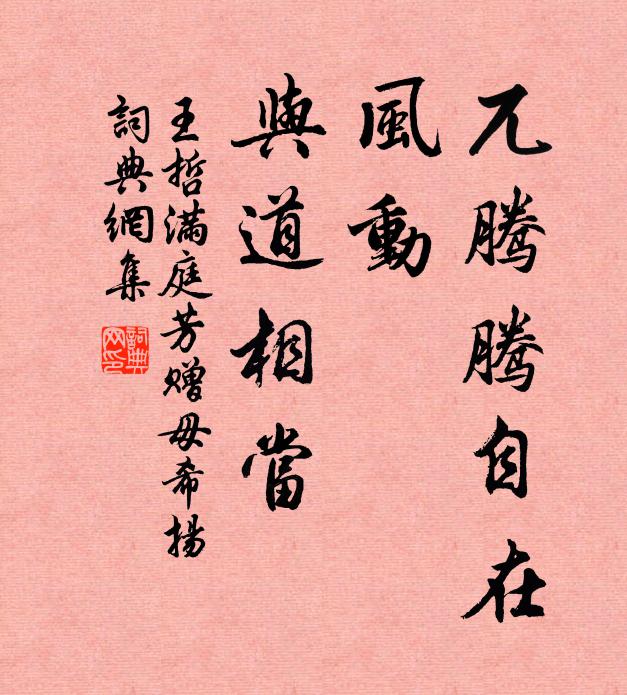 兀騰騰自在
風動
與道相當
王哲满庭芳赠毋希揚
詞典網集
詞典網印